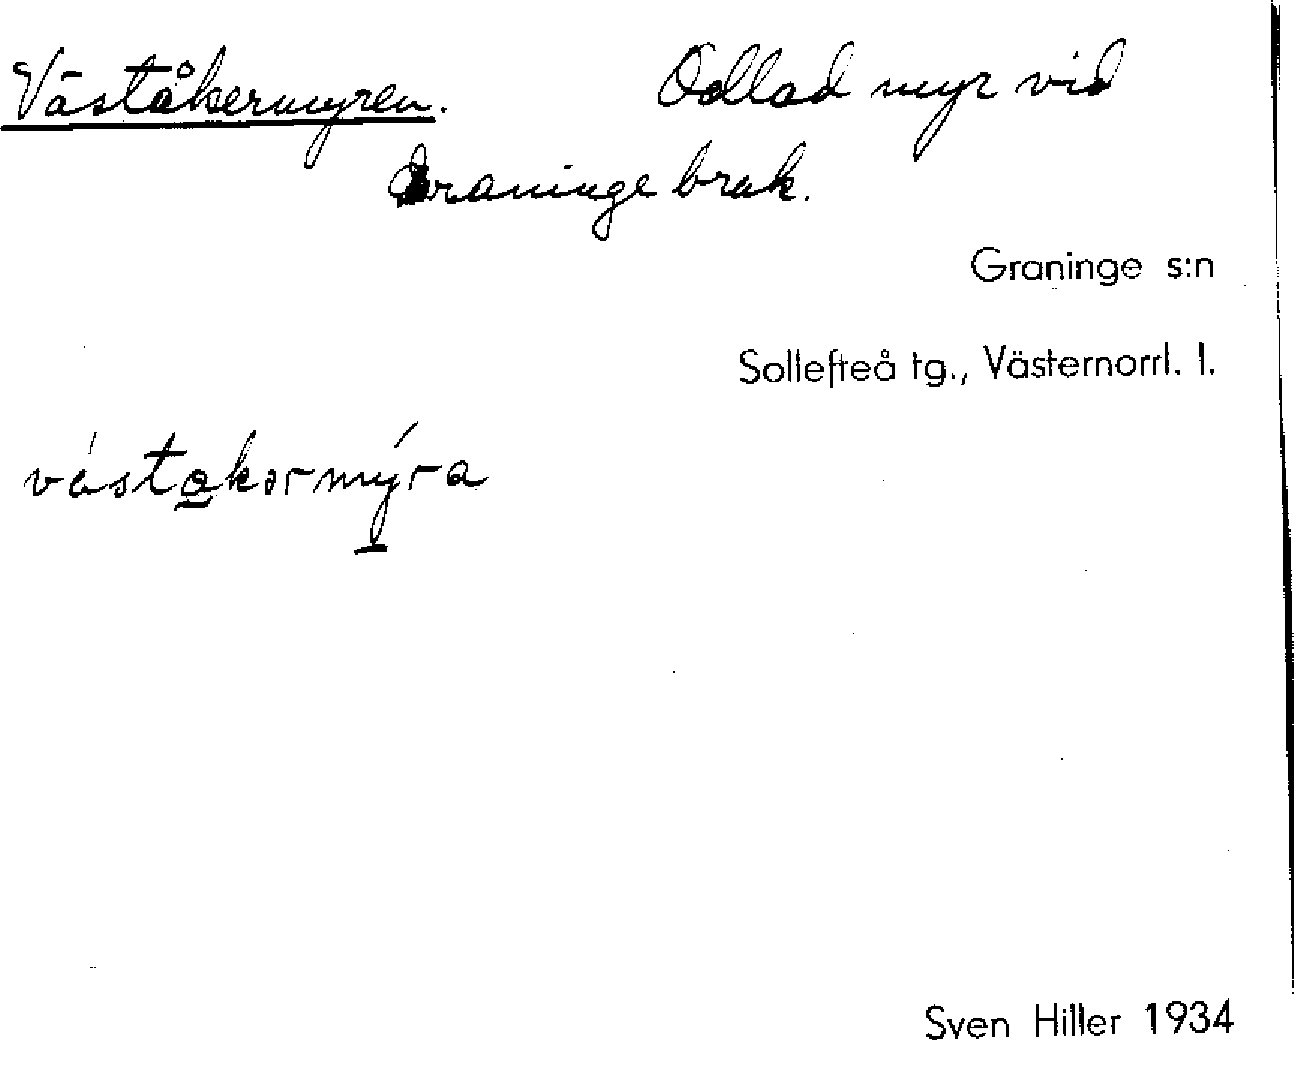 Väståkermyren. Odlad myr vid
Graninge bruk.
Graninge s:n
Sollefteå tg., Västernorrl. l.
västakərmýra
Sven Hiller 1934